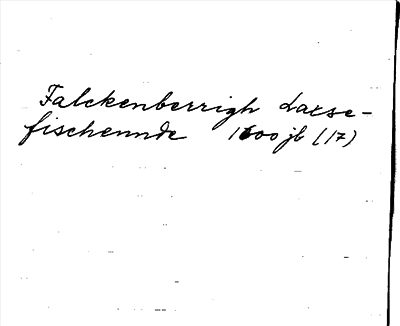 Falckenberrigh Laxse-
fischennde 1600 jb (17)